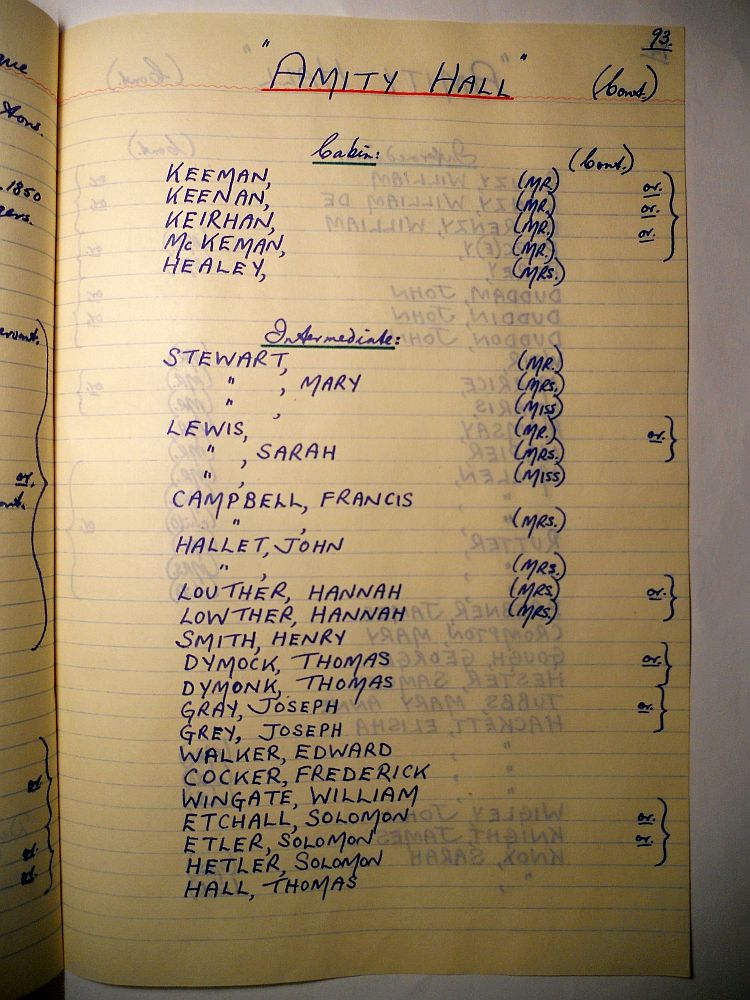 93.
"AMITY HALL" (Cont.)
Cabin: (Cont.)
KEEMAN, (MR.) or.
KEENAN, (MR.) or.
KEIRHAN, (MR.) or.
McKEMAN, (MR.)
HEALEY, (MRS.)
Intermediate:
STEWART, (MR.)
" , MARY (MRS.)
" , (MISS)
LEWIS, (MR.) or.
" , SARAH (MRS.)
" , (MISS)
CAMPBELL, FRANCIS
" , (MRS.)
HALLET, JOHN
" , (MRS.)
LOUTHER, HANNAH (MRS.) or.
LOWTHER, HANNAH (MRS.)
SMITH, HENRY
DYMOCK, THOMAS or.
DYMONK, THOMAS
GRAY, JOSEPH or.
GREY, JOSEPH
WALKER, EDWARD
COCKER, FREDERICK
WINGATE, WILLIAM
ETCHALL, SOLOMON or.
ETLER, SOLOMON or.
HETLER, SOLOMON
HALL, THOMAS